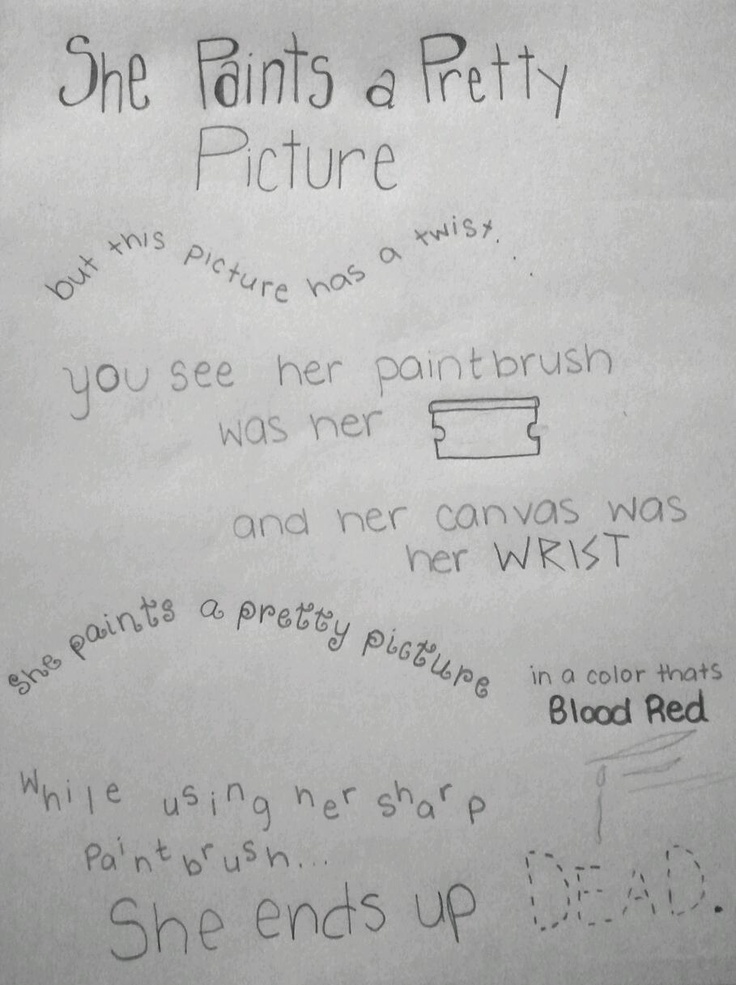 She Paints a Pretty
Picture
but this picture has a twist...
you see her paintbrush
was her
and her canvas was
her WRIST
she paints a pretty picture
in a color thats
Blood Red
While using her sharp
Paintbrush...
She ends up DEAD.